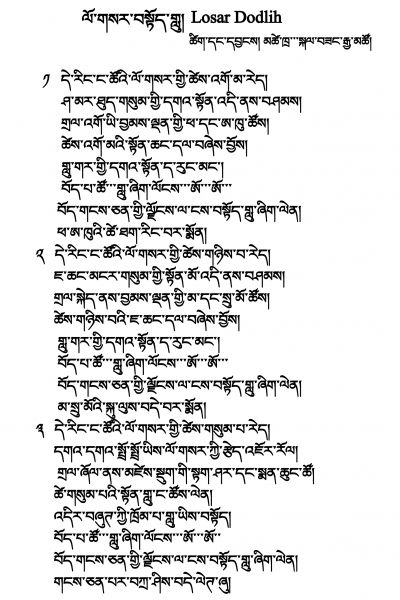 ལོ་གསར་བསྟོད་གླུ། Losar Dodlih
ཚིག་དང་དབྱངས། མཚོ་ཁྲ་་་སྐལ་བཟང་རྒྱ་མཚོ།
༡ དེ་རིང་ང་ཚོའི་ལོ་གསར་གྱི་ཚེས་འགོ་མ་རེད།
ཤ་མར་ཐུད་གསུམ་གྱི་དགའ་སྟོན་འདི་ནས་བཤམས།
གྲལ་འགོ་ཡི་བྱམས་ལྡན་གྱི་ཕ་དང་ཨ་ཁུ་ཚོས།
ཚེས་འགོ་མའི་སྟོན་ཆང་དལ་བཞེས་བྱོས།
གླུ་གར་གྱི་དགའ་སྟོན་ད་རུང་མང་།
བོད་པ་ཚོ་་་གླུ་ཞིག་ལོངས་་་ཨོ་་་ཨོ་་་
བོད་གངས་ཅན་གྱི་ལྗོངས་ལ་ངས་བསྟོད་གླུ་ཞིག་ལེན།
ཕ་ཨ་ཁུའི་ཚེ་ཐག་རིང་བར་སྨོན།
༢ དེ་རིང་ང་ཚོའི་ལོ་གསར་གྱི་ཚེས་གཉིས་པ་རེད།
ཇ་ཆང་མངར་གསུམ་གྱི་སྟོན་མོ་འདི་ནས་བཤམས།
གྲལ་སྐེད་ནས་བྱམས་ལྡན་གྱི་མ་དང་སྲུ་མོ་ཚོས།
ཚེས་གཉིས་པའི་ཇ་ཆང་དལ་བཞེས་བྱོས།
གླུ་གར་གྱི་དགའ་སྟོན་ད་རུང་མང་།
བོད་པ་ཚོ་་་གླུ་ཞིག་ལོངས་་་ཨོ་་་ཨོ་་་
བོད་གངས་ཅན་གྱི་ལྗོངས་ལ་ངས་བསྟོད་གླུ་ཞིག་ལེན།
མ་སྲུ་མོའི་སྐུ་ལུས་བདེ་བར་སྨོན།
༣ དེ་རིང་ང་ཚོའི་ལོ་གསར་གྱི་ཚེས་གསུམ་པ་རེད།
དགའ་དགའ་སྤྲོ་སྤྲོ་ཡིས་ལོ་གསར་ཀྱི་རྩེད་འཇོར་རོལ།
གྲལ་ཞོལ་ནས་མཛེས་སྡུག་གི་སྟག་ཤར་དང་སྨན་ཆུང་ཚོ།
ཚེ་གསུམ་པའི་སྟོན་གླུ་ང་ཚོས་ལེན།
འདིར་བཞུཊ་ཀྱི་ཁྲོམ་པ་གླུ་ཡིས་བསྟོད།
བོད་པ་ཚོ་་་གླུ་ཞིག་ལོངས་་་ཨོ་་་ཨོ་་་
བོད་གངས་ཅན་གྱི་ལྗོངས་ལ་ངས་བསྟོད་གླུ་ཞིག་ལེན།
གངས་ཅན་པར་བཀྲ་ཤིས་བདེ་ལེཊ་ཞུ།